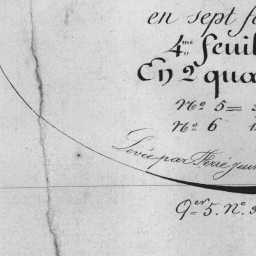 en sept f
4me feuil
En 2 qua
No 5 =
No 6
Levée par Ferré
Qer 5. No